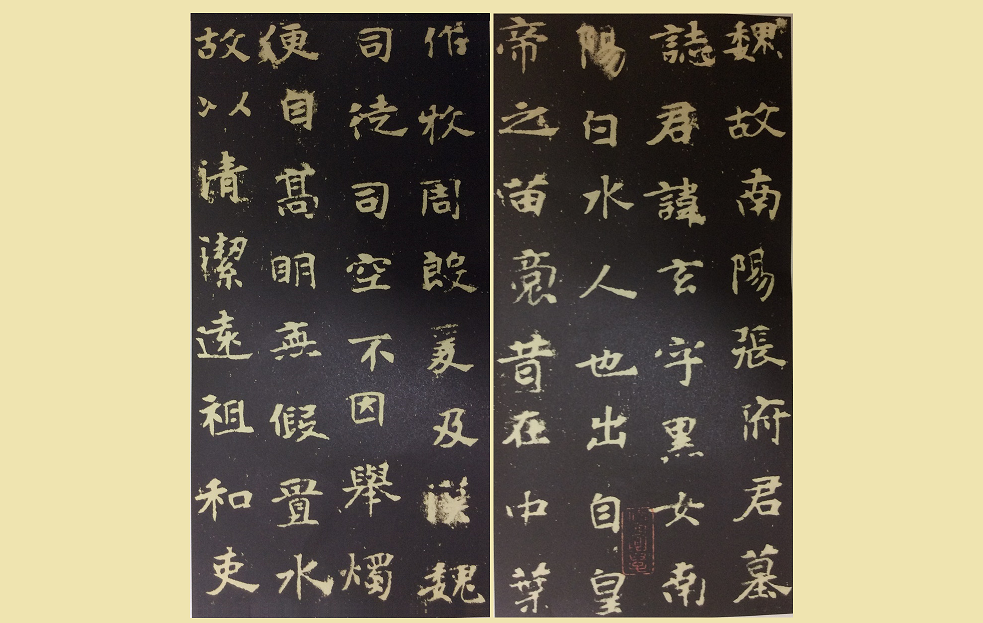 魏故南陽張府君墓
誌君諱玄字黑女南
陽白水人也出自皇
帝之苗裔昔在中葉
作牧周殷爰及漢魏
司徒司空不因舉燭
便自高明无假置水
故以清潔遠祖和吏